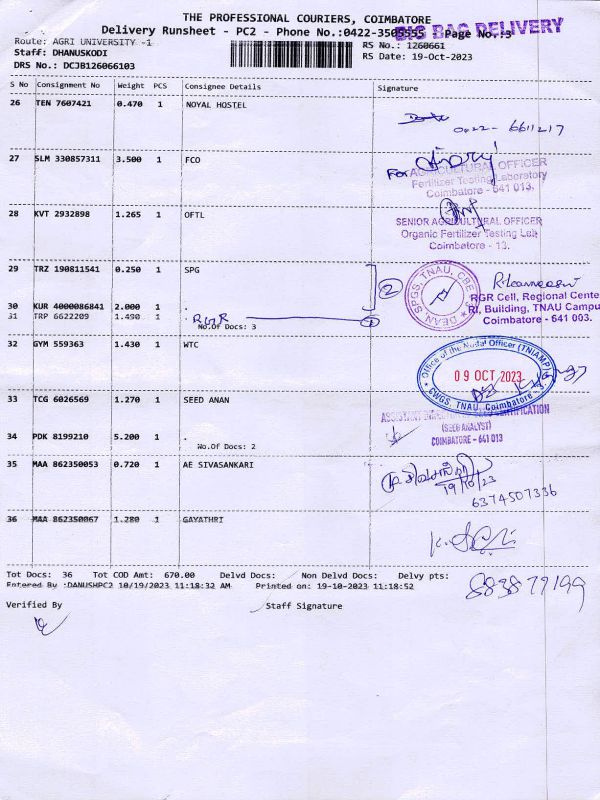 THE PROFESSIONAL COURIERS, COIMBATORE
Delivery Runsheet - PC2 - Phone No.:0422-3505555 Page No.:3
BIG BAG DELIVERY
Route: AGRI UNIVERSITY -1
Staff: DHANUSKODI
RS No.: 1260661
DRS No.: DCJB126066103
RS Date: 19-Oct-2023
S No Consignment No Weight PCS Consignee Details Signature
26 TEN 7607421 0.470 1 NOYAL HOSTEL
0422- 6611217
27 SLM 330857311 3.500 1 FCO
For
AGRICULTURAL OFFICER
Fertilizer Testing Laboratory
Coimbatore - 641 013.
28 KVT 2932898 1.265 1 OFTL
SENIOR AGRICULTURAL OFFICER
Organic Fertilizer Testing Lab
Coimbatore - 13.
29 TRZ 190811541 0.250 1 SPG
2
DEAN SPGS, TNAU, CBE
RGR Cell, Regional Centre
RI, Building, TNAU Campus
Coimbatore - 641 003.
30 KUR 4000086841 2.000 1 .
31 TRP 6622209 1.490 1 .
No.Of Docs: 3
32 GYM 559363 1.430 1 WTC
Office of the Nodal Officer (TNIAMP)
09 OCT 2023
CWGS, TNAU, Coimbatore
33 TCG 6026569 1.270 1 SEED ANAN
(SEED ANALYST)
COIMBATORE - 641 013
34 PDK 8199210 5.200 1 .
No.Of Docs: 2
35 MAA 862350053 0.720 1 AE SIVASANKARI
19/10/23
6374507336
36 MAA 862350067 1.280 1 GAYATHRI
Tot Docs: 36 Tot COD Amt: 670.00 Delvd Docs: Non Delvd Docs: Delvy pts:
Entered By :DANUSHPC2 10/19/2023 11:18:32 AM Printed on: 19-10-2023 11:18:52
Verified By Staff Signature